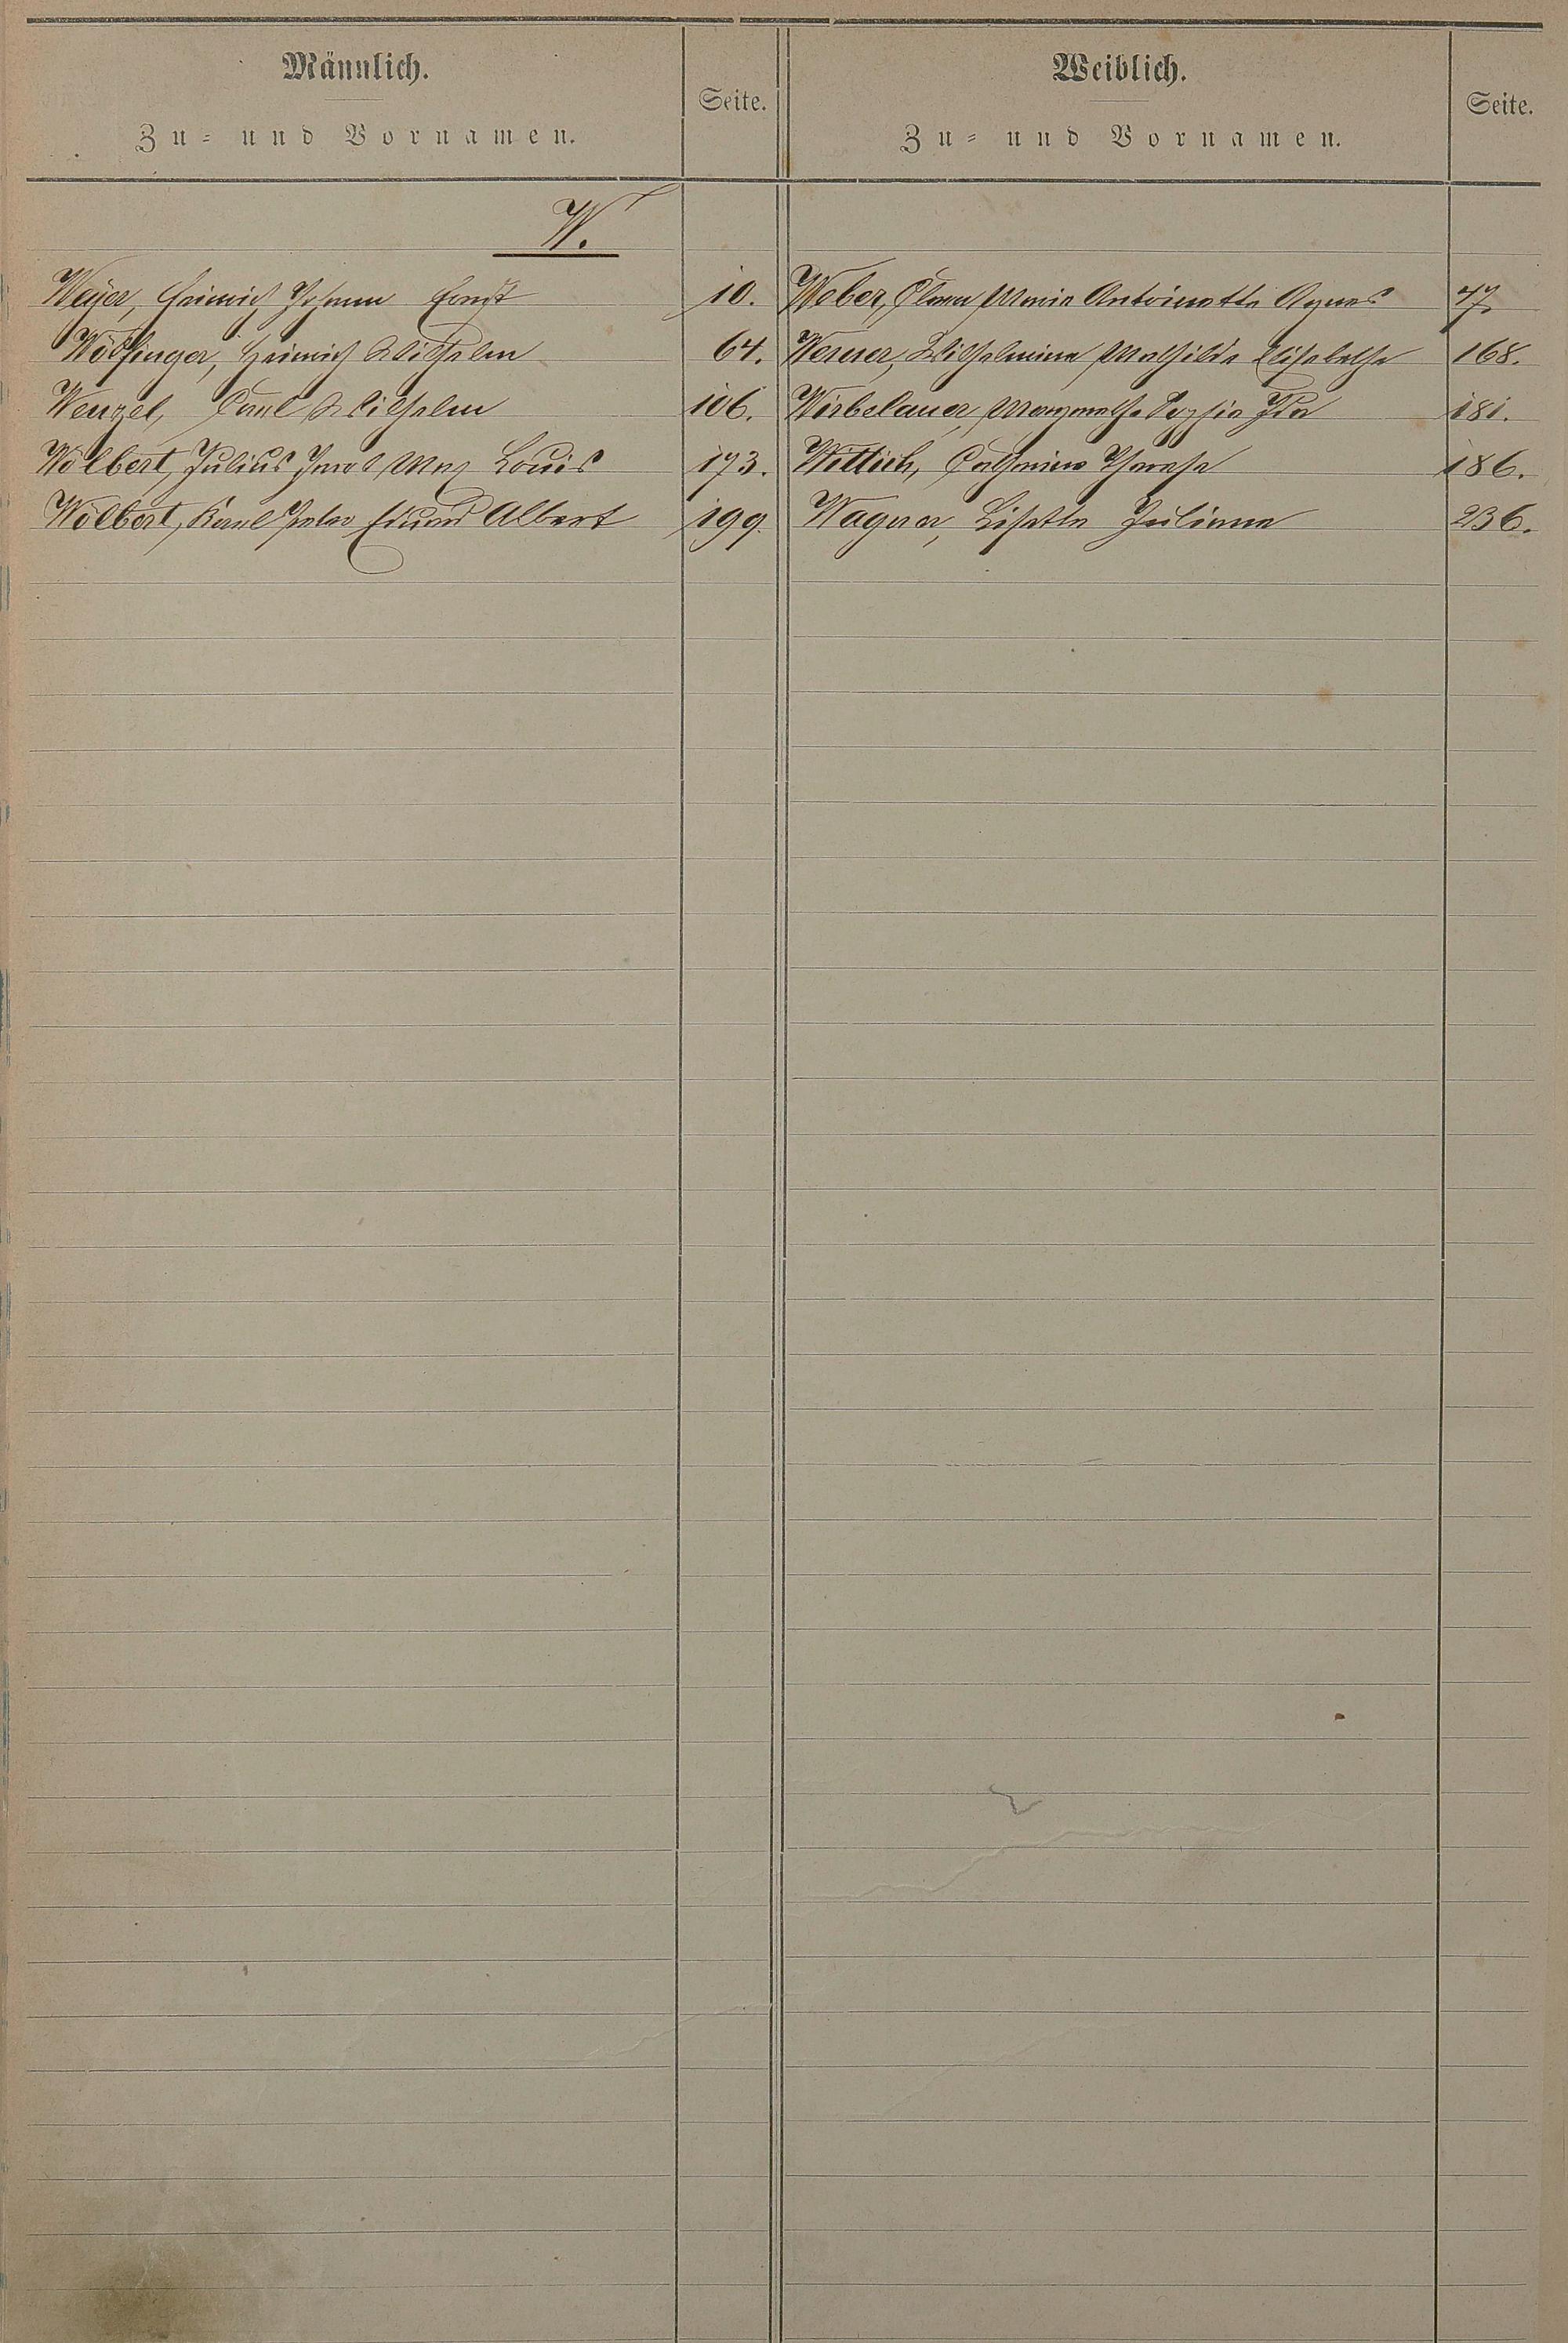 Männlich.
Zu- und Vornamen.
Seite.
Weiblich.
Zu- und Vornamen.
Seite.
W.
Weyer, Heinrich Johann Ernst 10.
Wölfinger, Heinrich Wilhelm 64.
Wenzel, Carl Wilhelm 106.
Wölbert, Julius Jacob Max Louis 173.
Wölbert, Karl Peter Eduard Albert 199.
Weber, Clara Maria Antoinette Agnes 77.
Werner, Wilhelmine Mathilde Elisabethe 168.
Wirbelauer, Margarethe Sophie Ida 181.
Wittich, Catharina Therese 186.
Wagner, Lisette Juliane 236.